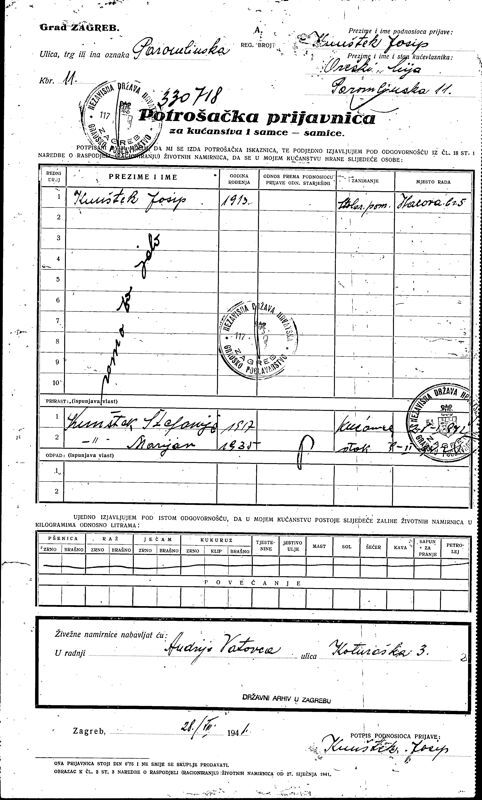 Grad ZAGREB.
A.
Prezime i ime podnosioca prijave:
Ulica, trg ili ina oznaka Paromlinska
REG. BROJ:
Kunštek Josip
Prezime i ime i stan kućevlasnika:
Kbr. 11.
Paromlinska 11.
330718
Potrošačka prijavnica
za kućanstva i samce – samice.
DA MI SE IZDA POTROŠAČKA ISKAZNICA, TE PODJEDNO IZJAVLJUJEM POD ODGOVORNOŠĆU IZ ČL. 18 ST. 1
NAREDBE O RASPODJELI (RACIONIRANJU) ŽIVOTNIH NAMIRNICA, DA SE U MOJEM KUĆANSTVU HRANE SLIJEDEĆE OSOBE:
REDNI BROJ
PREZIME I IME
GODINA ROĐENJA
ODNOS PREMA PODNOSIOCU PRIJAVE ODN. STARJEŠINI
ZANIMANJE
MJESTO RADA
1 Kunštek Josip 1913. pom.
2
3
4
5
6
7
8
9
10
NEZAVISNA DRŽAVA HRVATSKA
GRADSKO POGLAVARSTVO
ZAGREB
PRIRAST: (ispunjava vlast)
1 Kunštek 1917
2 -"- Marijan 1935
OTPAD: (ispunjava vlast)
1
2
UJEDNO IZJAVLJUJEM POD ISTOM ODGOVORNOŠĆU, DA U MOJEM KUĆANSTVU POSTOJE SLIJEDEĆE ZALIHE ŽIVOTNIH NAMIRNICA U
KILOGRAMIMA ODNOSNO LITRAMA:
PŠENICA RAŽ JEČAM KUKURUZ TJESTENINE JESTIVO ULJE MAST SOL ŠEĆER KAVA SAPUN ZA PRANJE PETROLEJ
ZRNO BRAŠNO ZRNO BRAŠNO ZRNO BRAŠNO ZRNO KLIP BRAŠNO
POVEĆANJE
Živežne namirnice nabavljat ću:
U radnji Andrije Vatovca ulica Koturaška 3.
DRŽAVNI ARHIV U ZAGREBU
Zagreb, 28./ 1941.
POTPIS PODNOSIOCA PRIJAVE:
Kunštek Josip
OVA PRIJAVNICA STOJI DIN 0'75 I NE SMIJE SE SKUPLJE PRODAVATI.
OBRAZAC K ČL. 3 ST. 3 NAREDBE O RASPODJELI (RACIONIRANJU) ŽIVOTNIH NAMIRNICA OD 27. SIJEČNJA 1941.